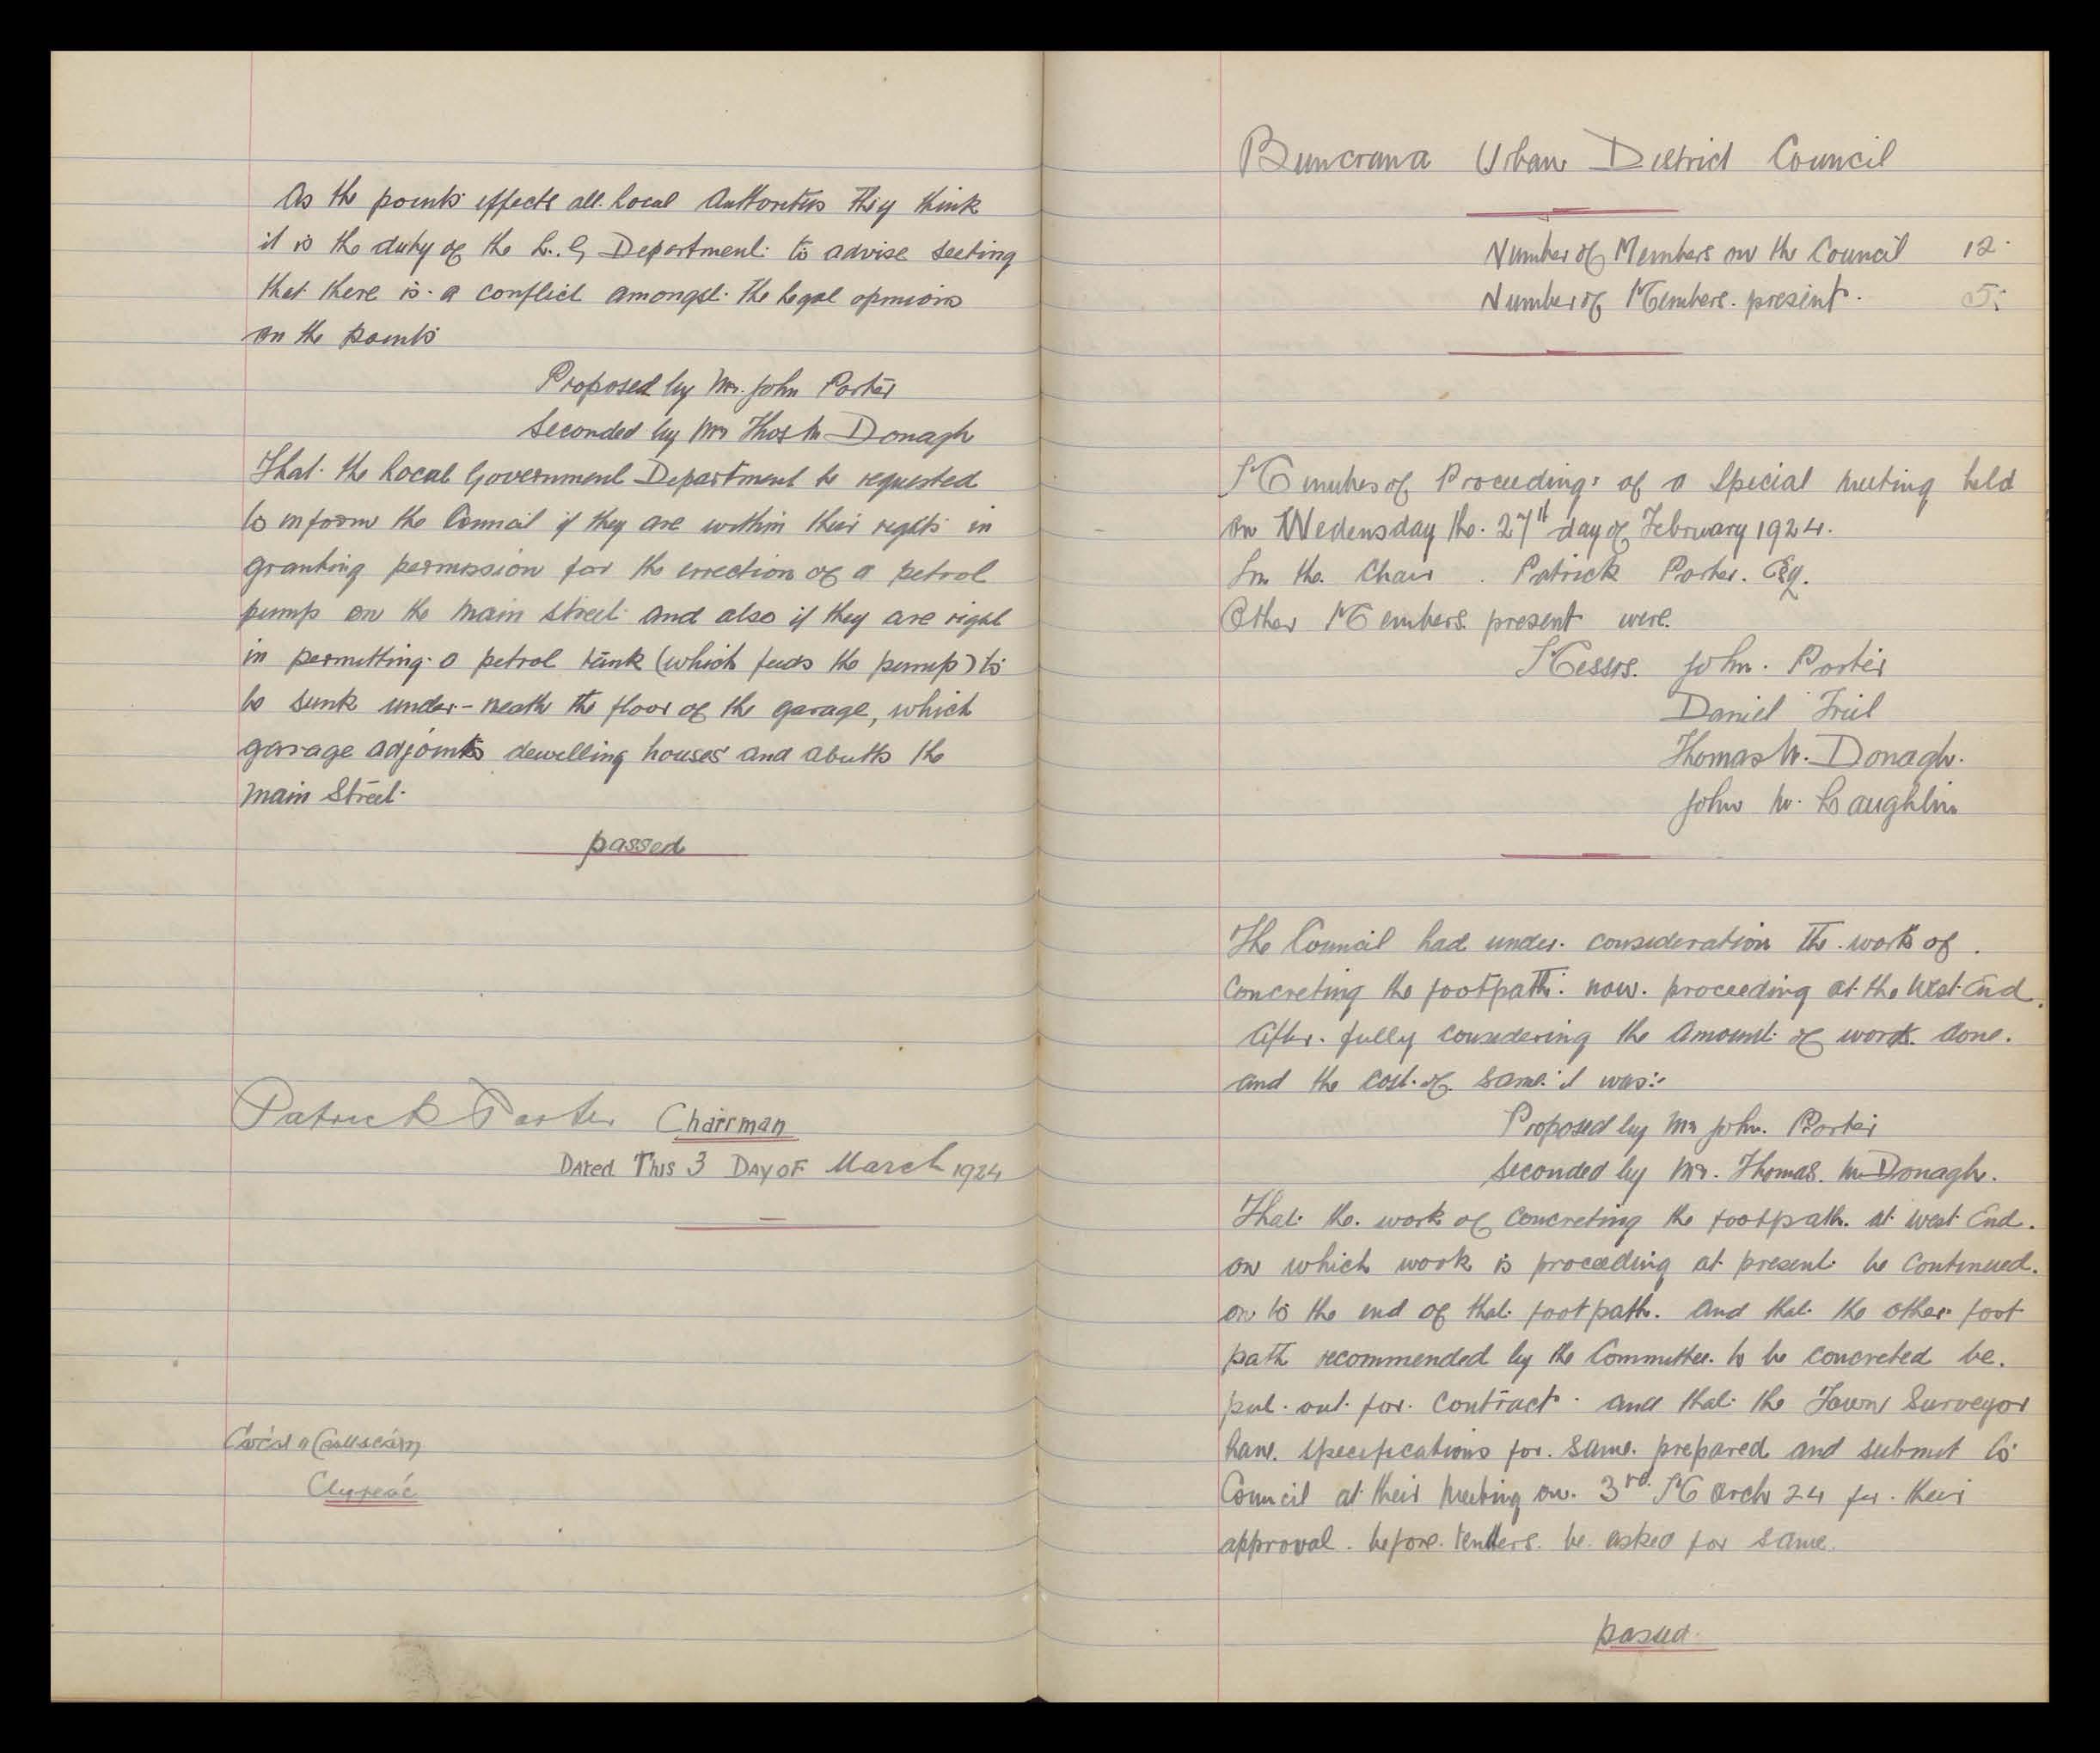 As the points effects all Local Authorities they think
it is the duty of the L. G Department to advise seeting
that there is a conflict amongst the legal opinions
on the points
Proposed by Mr. John Porter
Seconded by Mr Thos Mc Donagh
That the Local Government Department be requested
to inform the Council if they are within their rights in
granting permission for the errection of a petrol
pump on the main street and also if they are right
in permitting a petrol tank (which feeds the pump) to
be sunk under-neath the floor of the garage, which
garage adjoints dewelling houses and abutts the
Main Street.
passed
Patrick Porter Chairman
Dated This 3 Day of March 1924
Buncrana Urban District Council
Number of Members on the Council 12
Number of Members present. 5
Minutes of Proceedings of a Special meeting held
on Wedensday the 27th day of February 1924.
In the Chair. Patrick Porter. Esq.
Other Members present were.
Messrs. John. Porter
Daniel Friel
Thomas Mc. Donagh.
John Mc. Laughlin
The Council had under consideration the work of
Concreting the footpath. now. proceeding at the West End.
After. fully considering the amount of work done.
and the cost of same it was:-
Proposed by Mr John. Porter
Seconded by Mr. Thomas. McDonagh.
That the. work of Concreting the footpath. at West End.
on which work is proceeding at present be continued.
on to the end of that footpath. and that the other foot
path recommended by the Committee. to be concreted be.
put out for. Contract. and that the Town Surveyor
have. specifications for. same. prepared and submit to
Council at their meeting on. 3rd. March 24 for. their
approval. before. tenders. be asked for same.
passed.